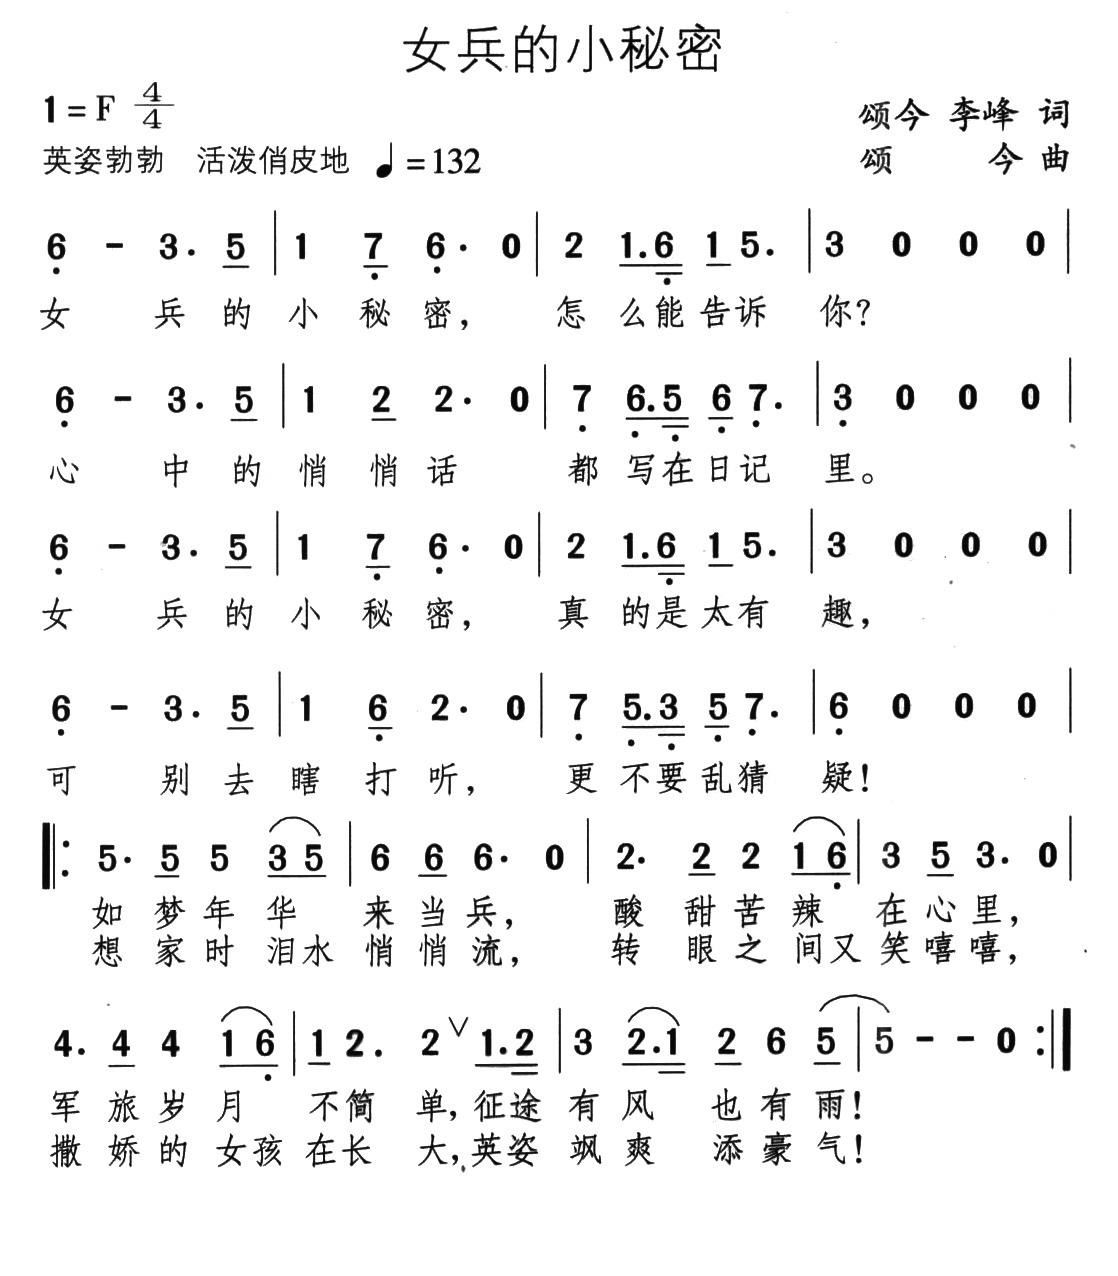 女兵的小秘密
1=F 4/4
颂今 李峰 词
英姿勃勃 活泼俏皮地 ♩=132
颂 今 曲
6 - 3. 5 | 1 7 6. 0 | 2 1.6 1 5. | 3 0 0 0 |
女 兵 的 小 秘 密， 怎 么能 告诉 你？
6 - 3. 5 | 1 2 2. 0 | 7 6.5 6 7. | 3 0 0 0 |
心 中 的 悄 悄 话 都 写在 日记 里。
6 - 3. 5 | 1 7 6. 0 | 2 1.6 1 5. | 3 0 0 0 |
女 兵 的 小 秘 密， 真 的是 太有 趣，
6 - 3. 5 | 1 6 2. 0 | 7 5.3 5 7. | 6 0 0 0 |
可 别 去 瞎 打 听， 更 不要 乱猜 疑！
|: 5. 5 5 3 5 | 6 6 6. 0 | 2. 2 2 1 6 | 3 5 3. 0 |
如 梦 年 华 来 当 兵， 酸 甜 苦 辣 在 心 里，
想 家 时 泪水 悄 悄 流， 转 眼 之 间又 笑 嘻 嘻，
4. 4 4 1 6 | 1 2. 2 ∨ 1.2 | 3 2.1 2 6 5 | 5 - - 0 :|
军 旅 岁 月 不 简 单，征途 有 风 也 有 雨！
撒 娇 的 女孩 在 长 大，英姿 飒 爽 添 豪 气！